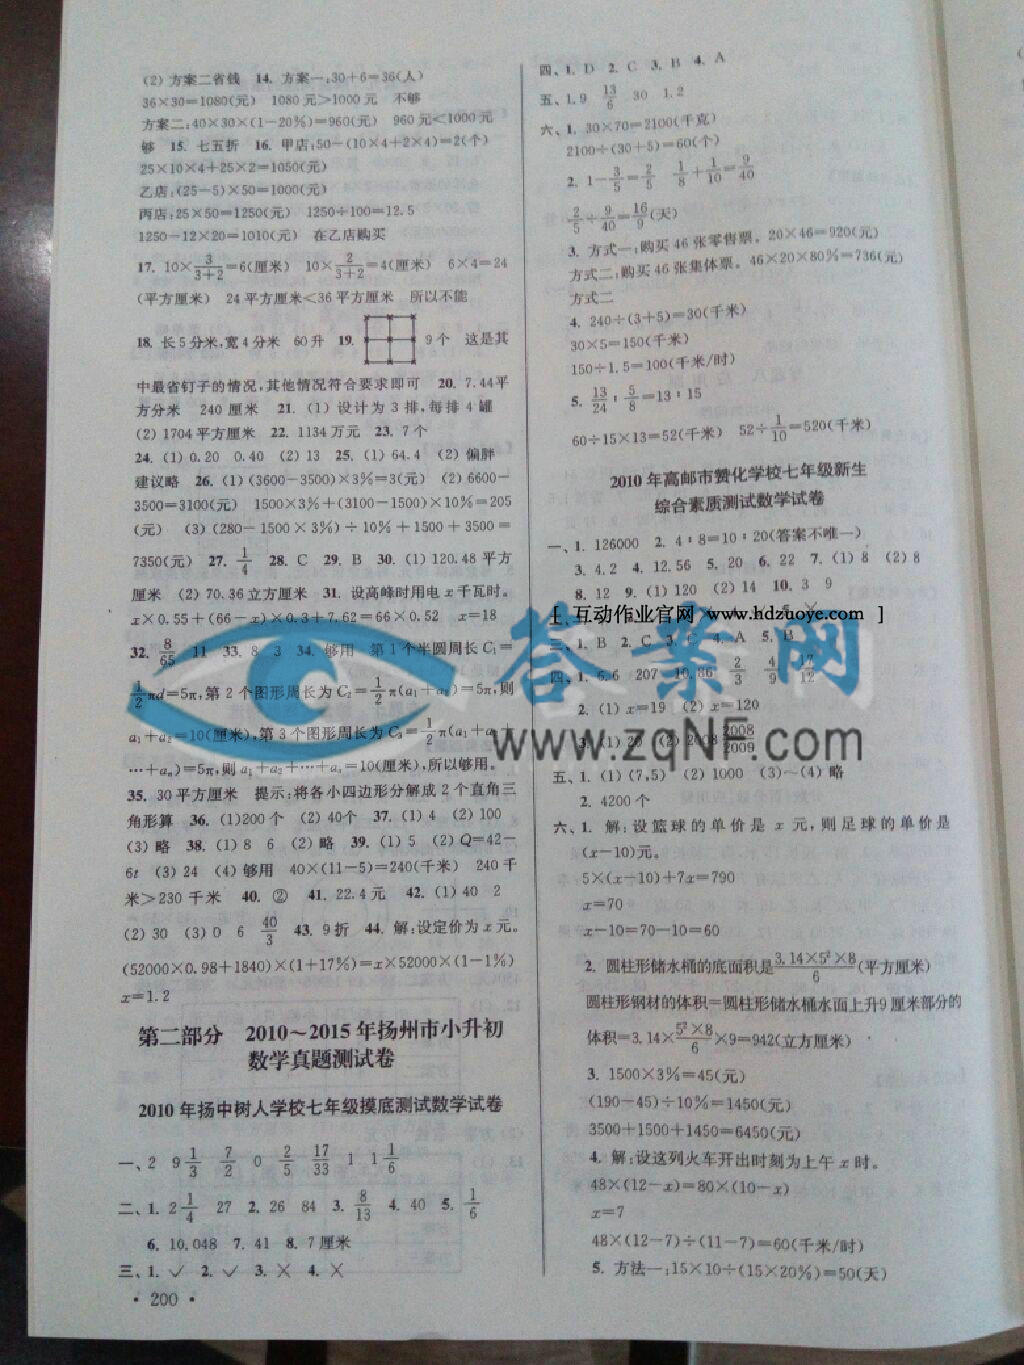 (2) 方案二省钱 14. 方案一:30+6=36(人)
36×30=1080(元) 1080元>1000元 不够
方案二:40×30×(1-20%)=960(元) 960元<1000元
够 15. 七五折 16. 甲店:50-(10×4+2×4)=2(个)
25×10×4+25×2=1050(元)
乙店:(25-5)×50=1000(元)
丙店:25×50=1250(元) 1250÷100=12.5
1250-12×20=1010(元) 在乙店购买
17. 10×3/(3+2)=6(厘米) 10×2/(3+2)=4(厘米) 6×4=24
(平方厘米) 24平方厘米<36平方厘米 所以不能
18. 长5分米,宽4分米 60升 19. 9个 这是其
中最省钉子的情况,其他情况符合要求即可 20. 7.44平
方分米 240厘米 21. (1) 设计为3排,每排4罐
(2) 1704平方厘米 22. 1134万元 23. 7个
24. (1) 0.20 0.40 (2) 13 25. (1) 64.4 (2) 偏胖
建议略 26. (1) (3600-3500)×3%=3(元) (2) 6600-
3500=3100(元) 1500×3%+(3100-1500)×10%=205
(元) (3) (280-1500×3%)÷10%+1500+3500=
7350(元) 27. 1/4 28. C 29. B 30. (1) 120.48平方
厘米 (2) 70.36立方厘米 31. 设高峰时用电x千瓦时。
x×0.55+(66-x)×0.3+7.62=66×0.52 x=18
32. 8/65 11 33. 8 3 34. 够用 第1个半圆周长C₁=
1/2πd=5π,第2个图形周长为C₂=1/2π(a₁+a₂)=5π,则
a₁+a₂=10(厘米),第3个图形周长为C₃=1/2π(a₁+a₂+
…+aₙ)=5π,则a₁+a₂+…+aₙ=10(厘米),所以够用。
35. 30平方厘米 提示:将各小四边形分解成2个直角三
角形算 36. (1)200个 (2) 40个 37. (1) 4 (2) 100
(3) 略 38. (1) 8 6 (2) 略 39. (1) 5 (2) Q=42-
6t (3) 24 (4) 够用 40×(11-5)=240(千米) 240千
米>230千米 40. ② 41. 22.4元 42. (1) 40 2
(2) 30 (3) 0 6 40/3 43. 9折 44. 解:设定价为x元。
(52000×0.98+1840)×(1+17%)=x×52000×(1-1%)
x=1.2
第二部分 2010~2015年扬州市小升初
数学真题测试卷
2010年扬中树人学校七年级摸底测试数学试卷
一、2 9 1/3 7/2 0 2/5 17/33 1 1 1/6
二、1. 2 1/4 27 2. 26 84 3. 8/13 4. 40 5. 1/6
6. 10.048 7. 41 8. 7厘米
三、1. ✓ 2. ✓ 3. × 4. ×
· 200 ·
四、1. D 2. C 3. B 4. A
五、1. 9 13/6 30 1.2
六、1. 30×70=2100(千克)
2100÷(30+5)=60(个)
2. 1-3/5=2/5 1/8+1/10=9/40
2/5÷9/40=16/9(天)
3. 方式一:购买46张零售票。20×46=920(元)
方式二:购买46张集体票。46×20×80%=736(元)
方式二
4. 240÷(3+5)=30(千米)
30×5=150(千米)
150÷1.5=100(千米/时)
5. 13/24:5/8=13:15
60÷15×13=52(千米) 52÷1/10=520(千米)
2010年高邮市赞化学校七年级新生
综合素质测试数学试卷
一、1. 126000 2. 4:8=10:20(答案不唯一)
3. 4.2 4. 12.56 5. 20 6. 22 7. (1) 8 (2) 8
8. 12 9. (1) 120 (2) 14 10. 3 9
[ 互动作业官网 www.hdzuoye.com ]
三、1. B 2. C 3. C 4. A 5. B
四、1. 6.6 207 10.86 2/3 4/9 17/12
2. (1) x=19 (2) x=120
3. (1) 20 (2) 2008 2008/2009
答案网
www.zqNF.com
五、1. (1) (7,5) (2) 1000 (3)~(4) 略
2. 4200个
六、1. 解:设篮球的单价是x元,则足球的单价是
(x-10)元。
5×(x-10)+7x=790
x=70
x-10=70-10=60
2. 圆柱形储水桶的底面积是3.14×5²×8/6(平方厘米)
圆柱形钢材的体积=圆柱形储水桶水面上升9厘米部分的
体积=3.14×5²×8/6×9=942(立方厘米)
3. 1500×3%=45(元)
(190-45)÷10%=1450(元)
3500+1500+1450=6450(元)
4. 解:设这列火车开出时刻为上午x时。
48×(12-x)=80×(10-x)
x=7
48×(12-7)÷(11-7)=60(千米/时)
5. 方法一:15×10÷(15×20%)=50(天)